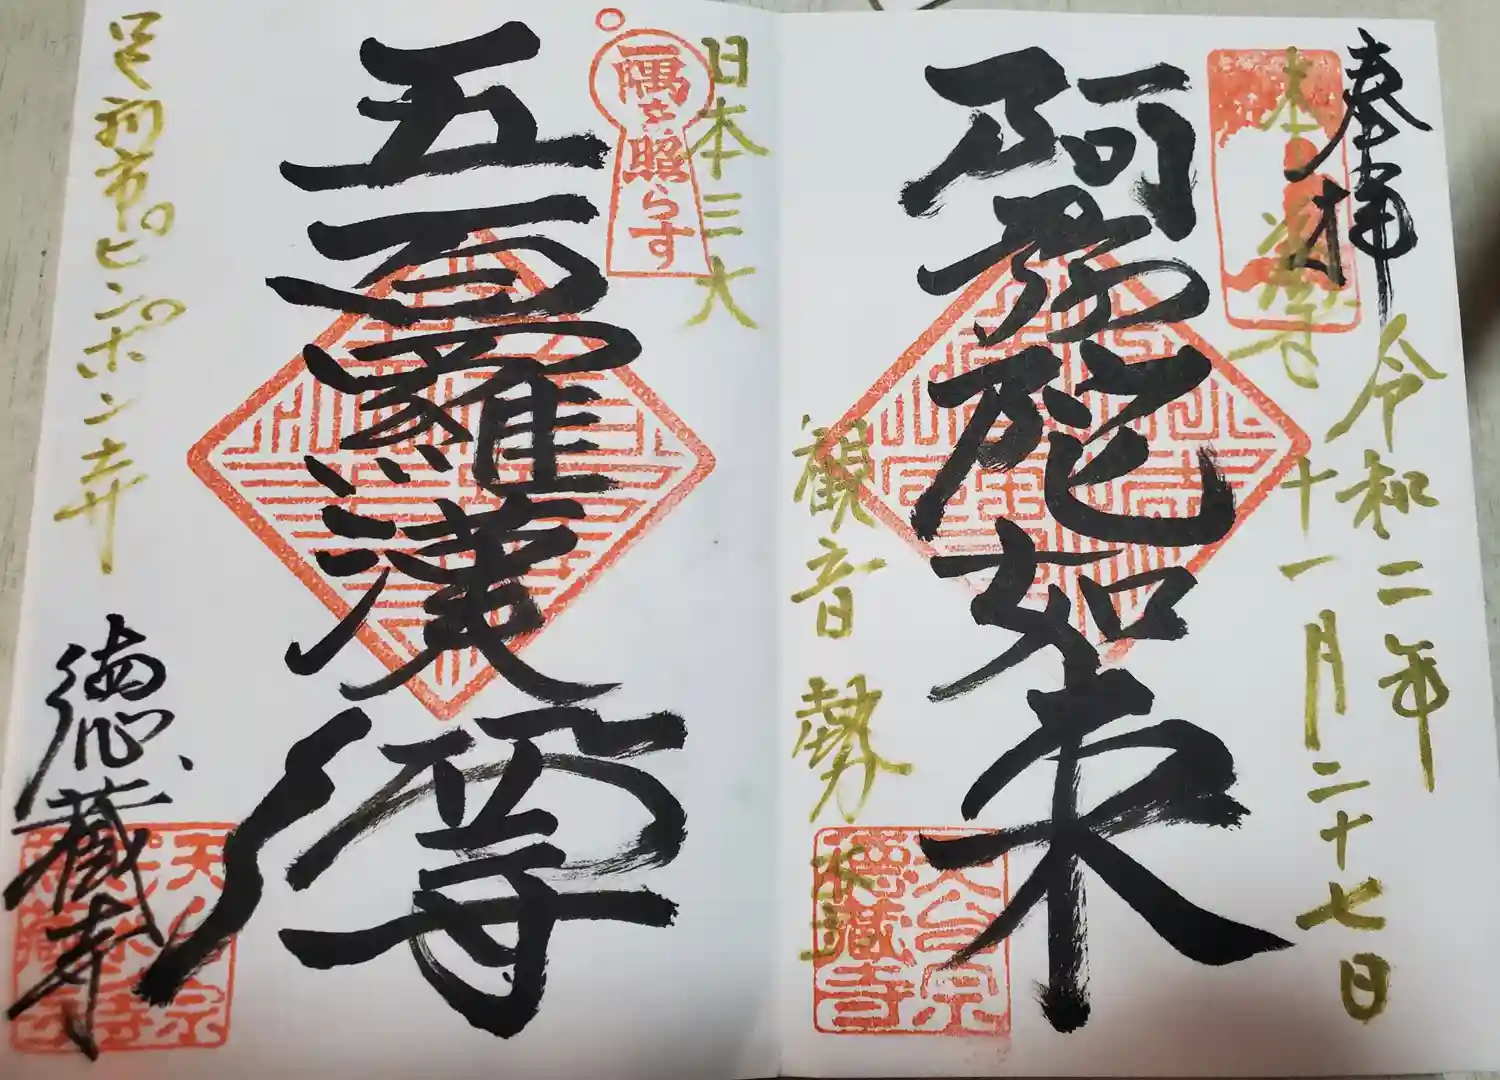 奉拝
令和二年
十一月二十七日
阿弥陀如来
観音勢
天台宗
徳蔵寺
日本三大
一隅を照らす
五百羅漢尊
足利市ピンポン寺
徳蔵寺